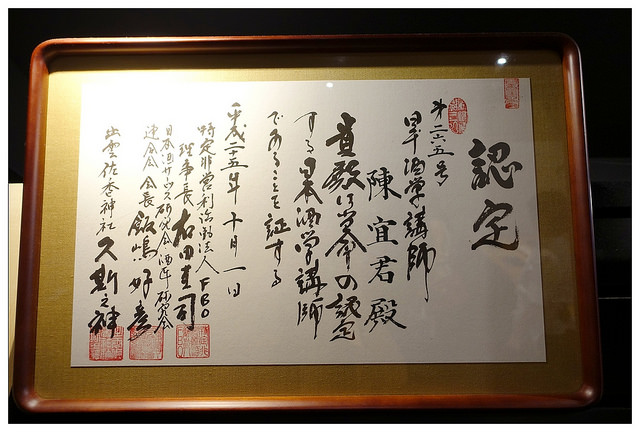 認定
第二六五号
日本酒学講師
陳宜君殿
貴殿は当会の認定
する日本酒学講師
であることを証する
平成二十五年十月一日
特定非営利活動法人FBO
理事長 右田圭司
日本酒サービス研究会酒匠研究会
連合会 会長 飯嶋
出雲佐香神社 久斯之神